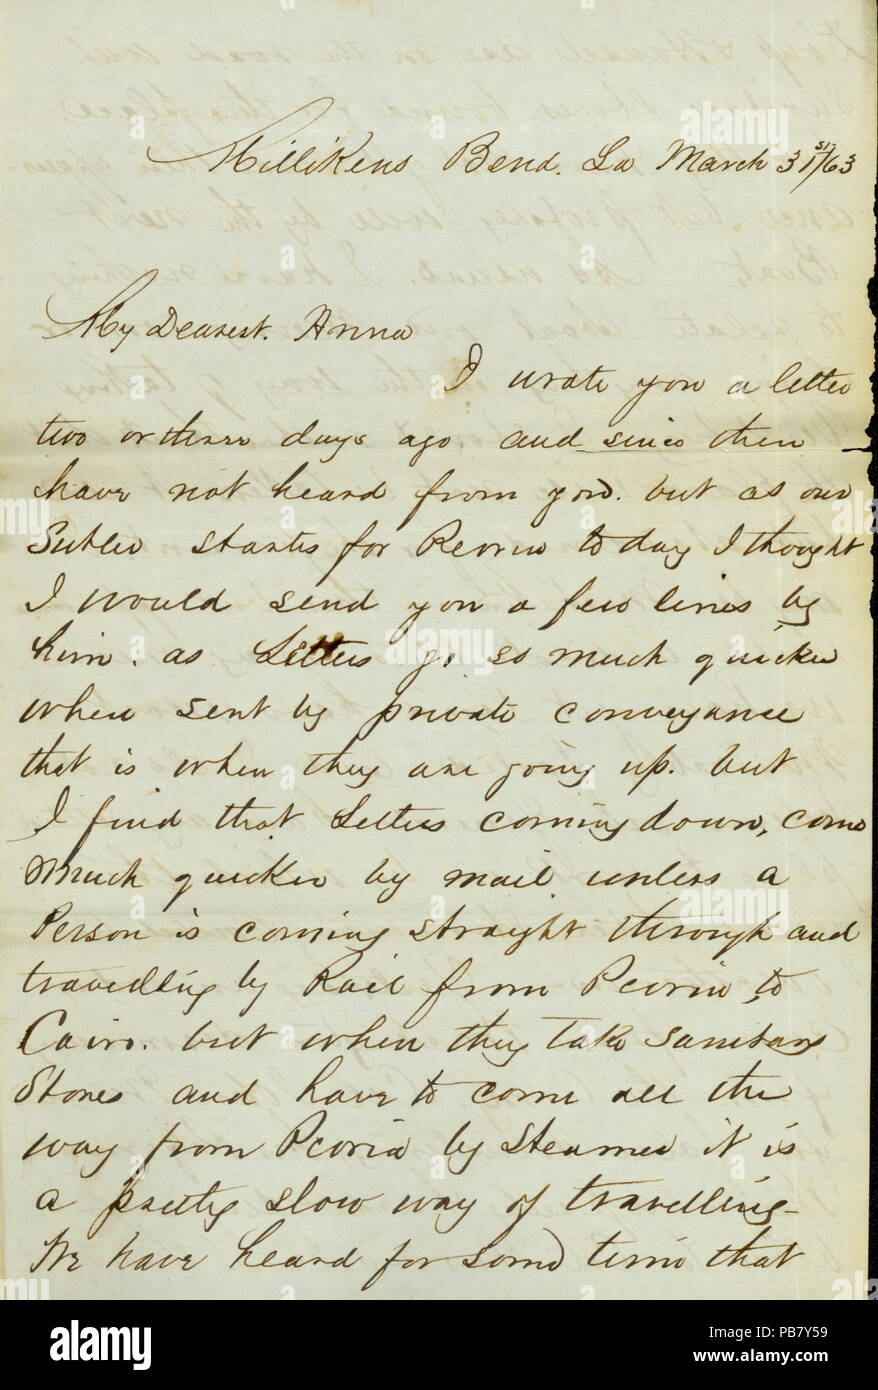 Millikens Bend. La March 31st/63
My Dearest. Anna
I wrote you a letter
two or three days ago and since then
have not heard from you. but as our
Sutler starts for Peoria to day I thought
I would send you a few lines by
him. as Letters go so much quicker
when sent by private conveyance
that is when they are going up. but
I find that Letters coming down, come
Much quicker by mail unless a
Person is coming straight through and
travelling by Rail from Peoria to
Cairo. but when they take Sanitary
Stores and have to come all the
way from Peoria by Steamer it is
a pretty slow way of travelling-
We have heard for some time that
alamy
alamy stock photo
Image ID: PB7Y59
www.alamy.com